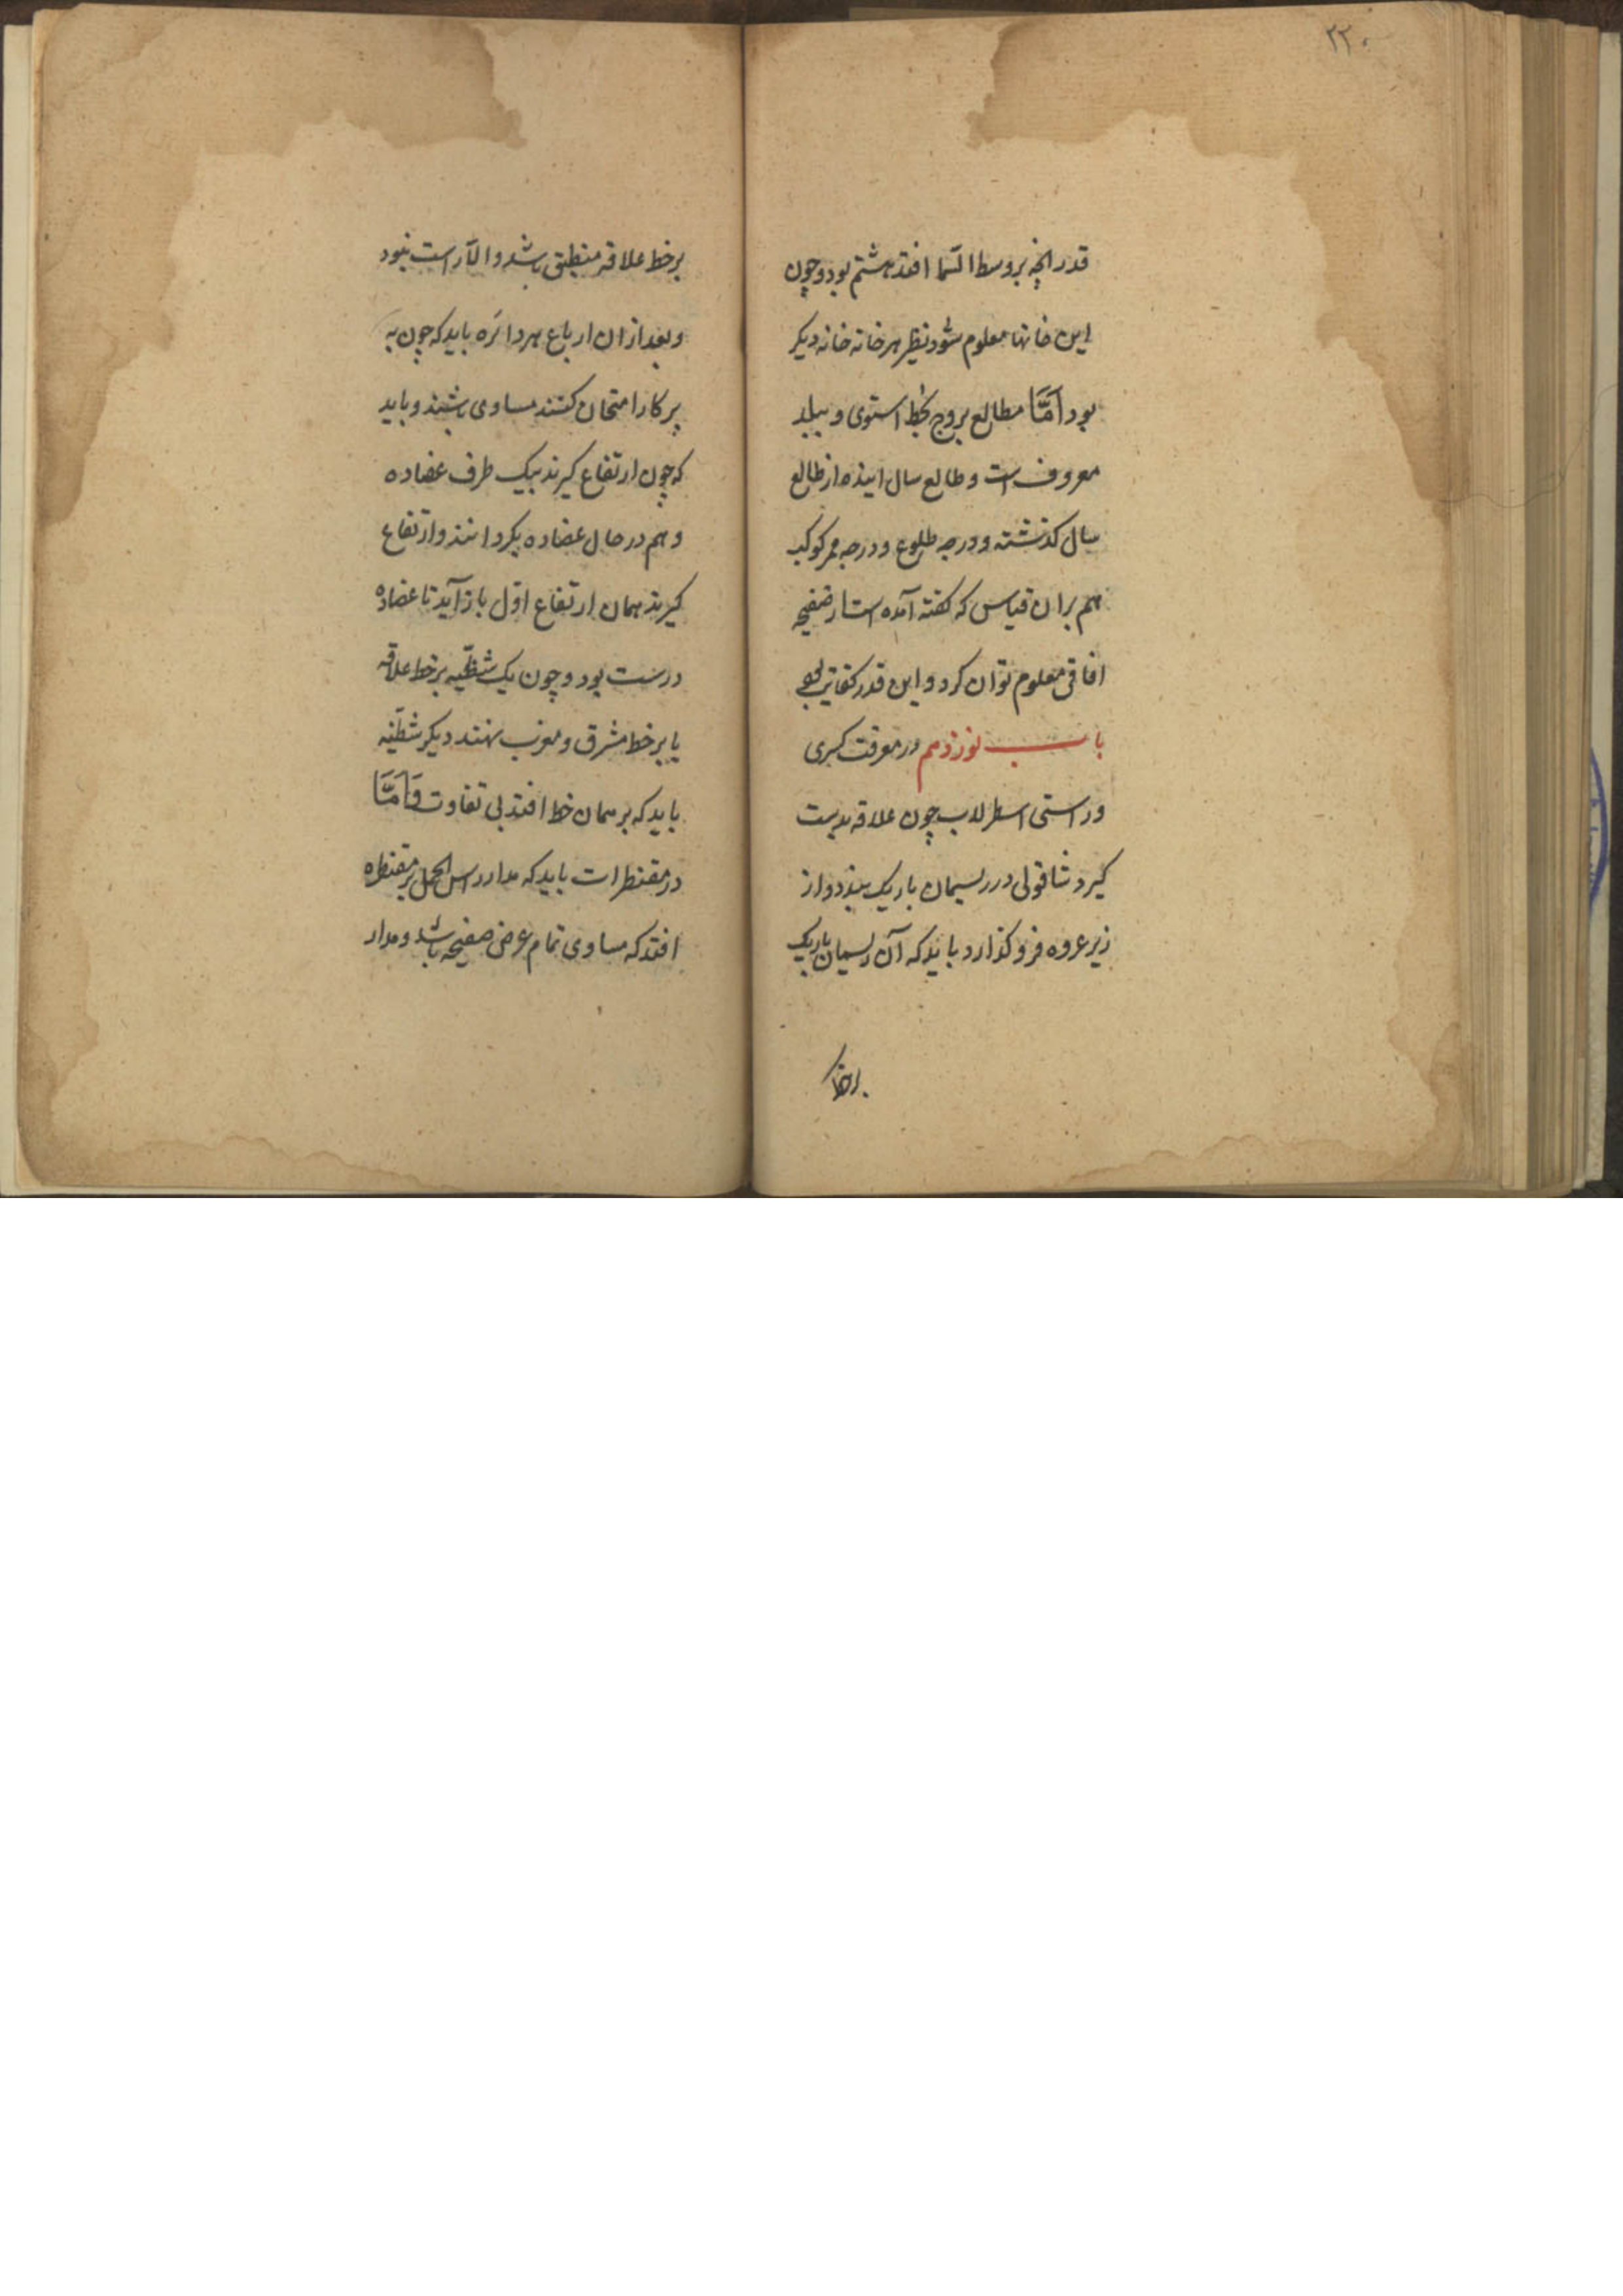 ۲۲۰
قدر انچه بر وسط السما افتد هشتم بود و چون
این خانها معلوم شود نظیر هر خانه خانه دیکر
بود اَمَّا مطالع بروج بخط استوی و ببلد
معروف است و طالع سال اینده از طالع
سال کذشته و درجه طلوع و درجه ممر کوکب
هم بران قیاس که کفته آمده است از صفیحه
افاقی معلوم توان کرد و این قدر کفایت
باب نوزدهم در معرفت کبری
و راستی اسطرلاب چون علاقه بدست
کیرد شاقولی در ریسمان باریک بندد و از
زیر عروه فرو کذارد باید که آن ریسمان باریک
بر خط
بر خط علاقه منطبق باشد و الّا راست نبود
و بعد از ان ارباع هر دائره باید که چون به
پرکار امتحان کنند مساوی باشند و باید
که چون ارتفاع کیرند بیک طرف عضاده
و هم در حال عضاده بکردانند و ارتفاع
کیرند همان ارتفاع اوّل باز آید تا عضاده
درست بود و چون یک شظیّه بر خط علاقه
یا بر خط مشرق و مغرب نهند دیکر شظیّه
باید که بر همان خط افتد بی تفاوت وَاَمَّا
در مقنطرات باید که مدار راس الحمل بر مقنطره
افتد که مساوی تمام عرض صفیحه باشد و مدار